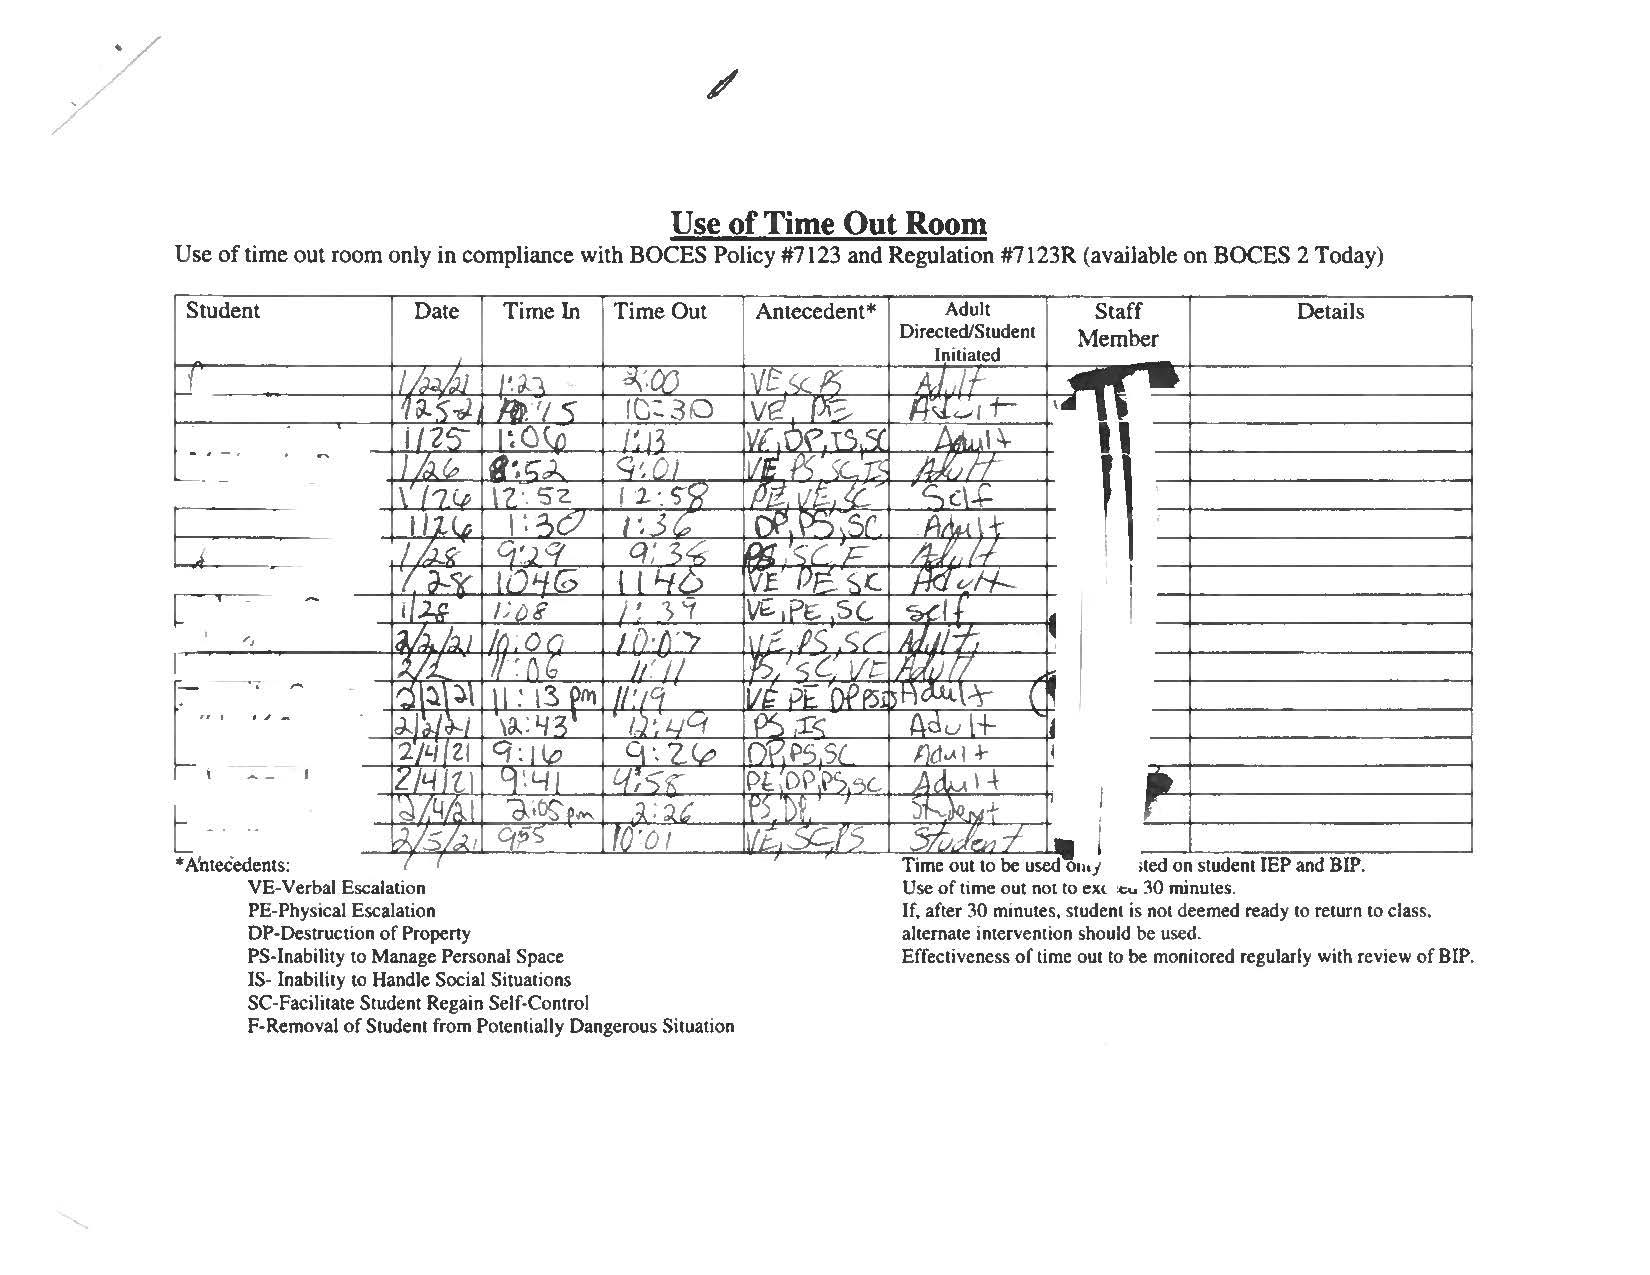 Use of Time Out Room
Use of time out room only in compliance with BOCES Policy #7123 and Regulation #7123R (available on BOCES 2 Today)
Student Date Time In Time Out Antecedent* Adult Directed/Student Initiated Staff Member Details
1/22/21 1:23 2:00 VE SC PS Adult
1 25-21 10:15 10:30 VE, PE Adult
1/25 1:06 1:13 VE, DP, IS, SC Adult
1/26 8:52 9:01 VE PS SC, IS Adult
1/26 12:52 12:58 PE, VE, SC Self
1/26 1:30 1:36 DP, PS, SC Adult
1/28 9:29 PS, SC, F Adult
1/28 1046 VE PE SC Adult
1/28 1:08 1:39 VE, PE, SC self
2/2/21 10:00 10:07 VE, PS, SC Adult
2/2 11:06 11:11 PS, SC, VE Adult
2/2/21 11:13 pm 11:19 VE PE DP Adult
2/2/21 12:43 12:49 PS, IS Adult
2/4/21 9:16 9:26 DP, PS, SC Adult
2/4/21 9:41 9:58 PE, DP, PS, SC Adult
2/4/21 2:05 pm 2:26 PS, Student
2/5/21 955 10:01 VE, SC, PS Student
*Antecedents:
VE-Verbal Escalation
PE-Physical Escalation
DP-Destruction of Property
PS-Inability to Manage Personal Space
IS- Inability to Handle Social Situations
SC-Facilitate Student Regain Self-Control
F-Removal of Student from Potentially Dangerous Situation
Time out to be used on student IEP and BIP.
Use of time out not to 30 minutes.
If, after 30 minutes, student is not deemed ready to return to class,
alternate intervention should be used.
Effectiveness of time out to be monitored regularly with review of BIP.